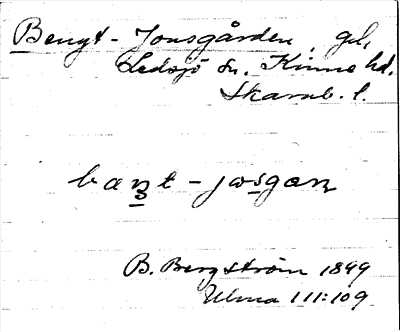 Bengt-Jonsgården, gd,
Ledsjö sn. Kinne hd.
Skarab. l.
baŋt-jωsgaꞃ
B. Bergström 1899
Ulma 111:109